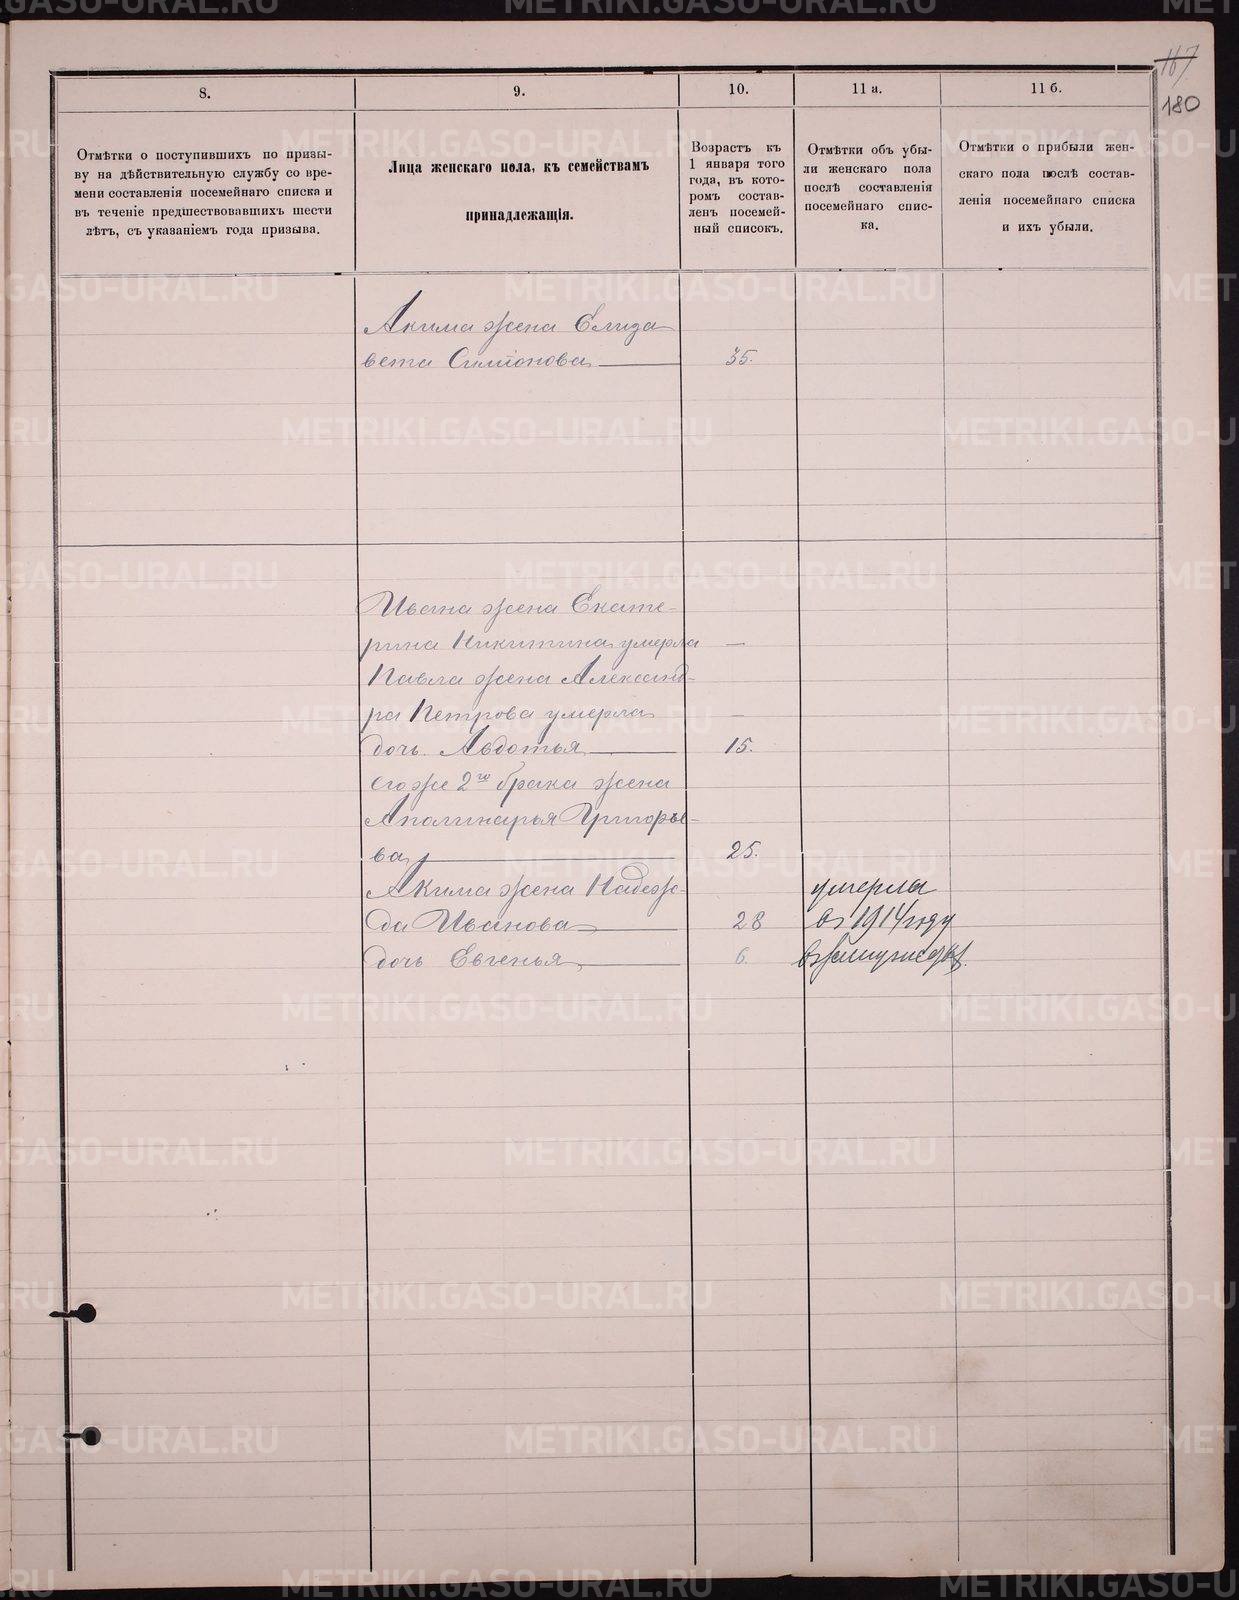 167
180
8.
9.
10.
11 а.
11 б.
Отмѣтки о поступившихъ по призы-
ву на дѣйствительную службу со вре-
мени составленія посемейнаго списка и
въ теченіе предшествовавшихъ шести
лѣтъ, съ указаніемъ года призыва.
Лица женскаго пола, къ семействамъ
принадлежащія.
Возрастъ къ
1 января того
года, въ кото-
ромъ состав-
ленъ посемей-
ный списокъ.
Отмѣтки объ убы-
ли женскаго пола
послѣ составленія
посемейнаго спис-
ка.
Отмѣтки о прибыли жен-
скаго пола послѣ состав-
ленія посемейнаго списка
и ихъ убыли.
Акима жена Елиза
вета Симионова 35.
Ивана жена Екате-
рина Никитина умерла —
Павла жена Александ-
ра Петрова умерла —
дочь Авдотья 15.
Его же 2го брака жена
Аполинарья Григорье-
ва 25.
Акима жена Надеж- умерла
да Иванова 28 въ 1914 году
дочь Евгенья 6. въ замужестве
METRIKI.GASO-URAL.RU